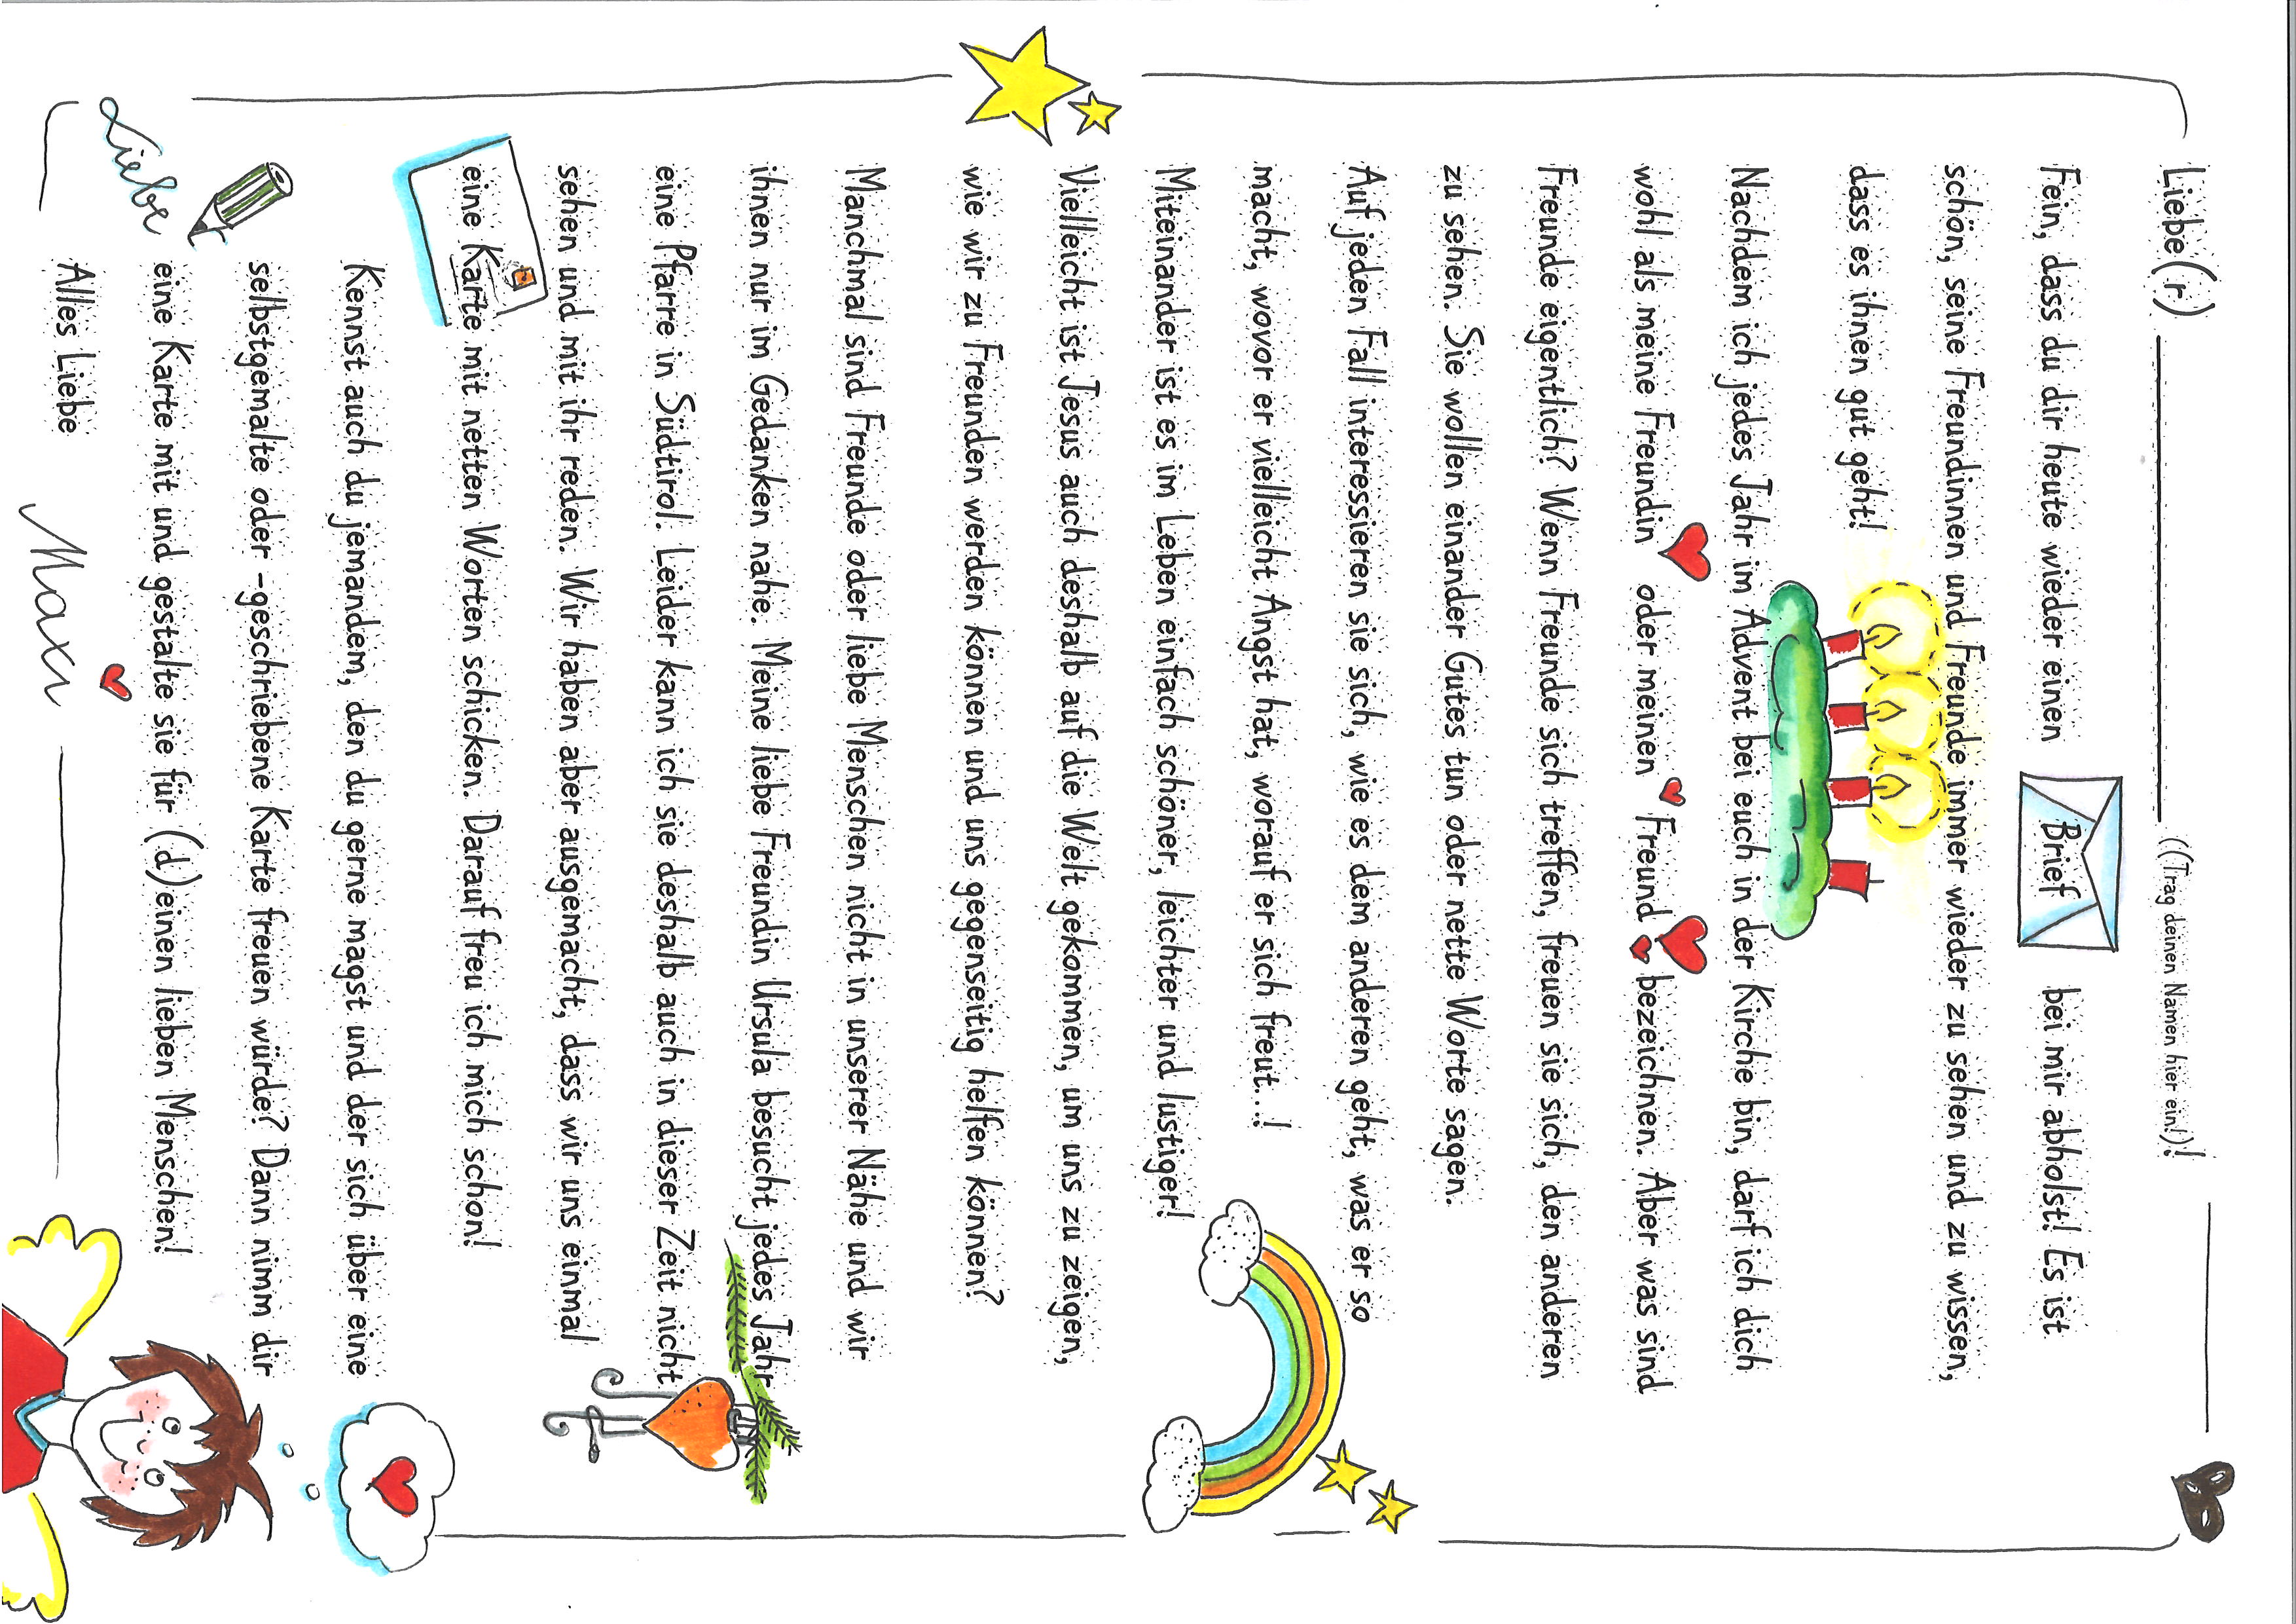 Liebe(r) ((Trag deinen Namen hier ein!)!
Fein, dass du dir heute wieder einen Brief bei mir abholst! Es ist
schön, seine Freundinnen und Freunde immer wieder zu sehen und zu wissen,
dass es ihnen gut geht!
Nachdem ich jedes Jahr im Advent bei euch in der Kirche bin, darf ich dich
wohl als meine Freundin oder meinen Freund bezeichnen. Aber was sind
Freunde eigentlich? Wenn Freunde sich treffen, freuen sie sich, den anderen
zu sehen. Sie wollen einander Gutes tun oder nette Worte sagen.
Auf jeden Fall interessieren sie sich, wie es dem anderen geht, was er so
macht, wovor er vielleicht Angst hat, worauf er sich freut...!
Miteinander ist es im Leben einfach schöner, leichter und lustiger!
Vielleicht ist Jesus auch deshalb auf die Welt gekommen, um uns zu zeigen,
wie wir zu Freunden werden können und uns gegenseitig helfen können?
Manchmal sind Freunde oder liebe Menschen nicht in unserer Nähe und wir
ihnen nur im Gedanken nahe. Meine liebe Freundin Ursula besucht jedes Jahr
eine Pfarre in Südtirol. Leider kann ich sie deshalb auch in dieser Zeit nicht
sehen und mit ihr reden. Wir haben aber ausgemacht, dass wir uns einmal
eine Karte mit netten Worten schicken. Darauf freu ich mich schon!
Kennst auch du jemandem, den du gerne magst und der sich über eine
selbstgemalte oder -geschriebene Karte freuen würde? Dann nimm dir
eine Karte mit und gestalte sie für (d)einen lieben Menschen!
Liebe
Alles Liebe
Maxi